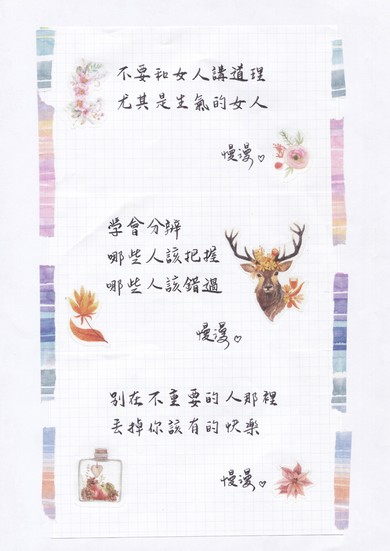 不要和女人講道理
尤其是生氣的女人
慢漫♡
學會分辨
哪些人該把握
哪些人該錯過
慢漫♡
別在不重要的人那裡
丟掉你該有的快樂
慢漫♡